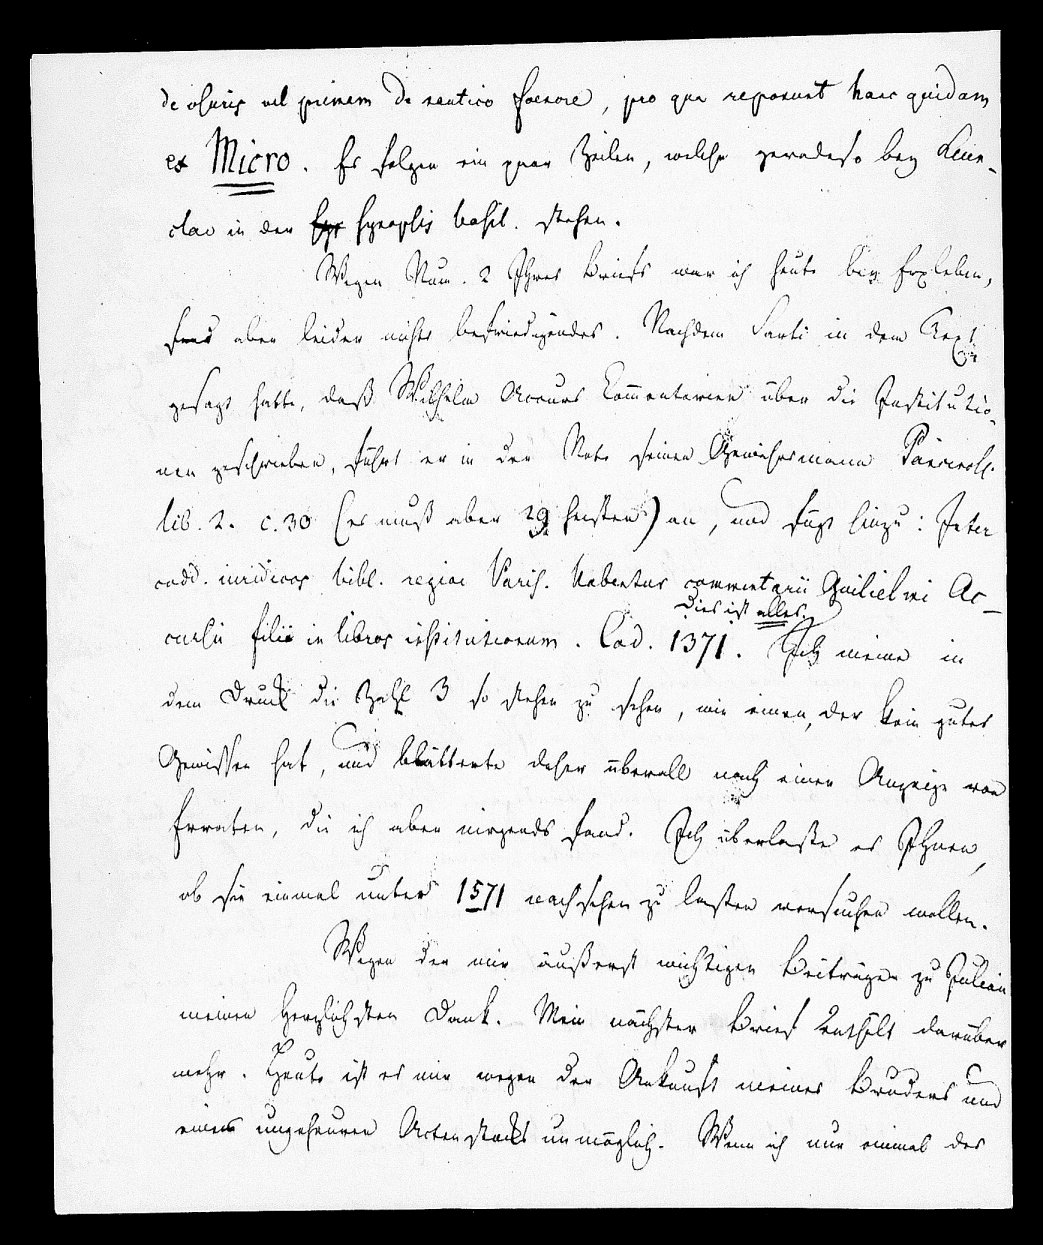 de usuris vel primum de nautico foenore, pro qua reponunt haec quidam
ex Micro. Es folgen ein paar Zeilen, welche geradeso bey Leun-
clav in der Syn Synopsis basil. stehen.
Wegen Num. 2 Ihres Briefs war ich heute bey Erxleben,
fand aber leider nichts befriedigendes. Nachdem Sarti in dem Text
gesagt hatte, daß Wilhelm Accurs Commentarien über die Institutio-
nen geschrieben, führt er in der Note seinen Gewährsmann Panciroll.
lib. 2. c. 30 (es muß aber 29 heißen) an, und fügt hinzu: Inter
codd. iuridicos bibl. regiae Paris. habentur commentarii Guilielmi Ac-
cursii filii in libros institutionum. Cod. 1371. Dies ist alles. Ich meine in
dem Druck die Zahl 3 so stehen zu sehen, wie einen, der kein gutes
Gewissen hat, und blätterte daher überall nach einer Anzeige von
Erraten, die ich aber nirgends fand. Ich überlasse es Ihnen,
ob sie einmal unter 1571 nachsehen zu lassen versuchen wollen.
Wegen der mir äußerst wichtigen Beiträge zu Julian
meinen herzlichsten Dank. Mein nächster Brief enthält darüber
mehr. Heute ist es mir wegen der Ankunft meines Bruders und
eines ungeheuren Actenstocks unmöglich. Wenn ich nur einmal des